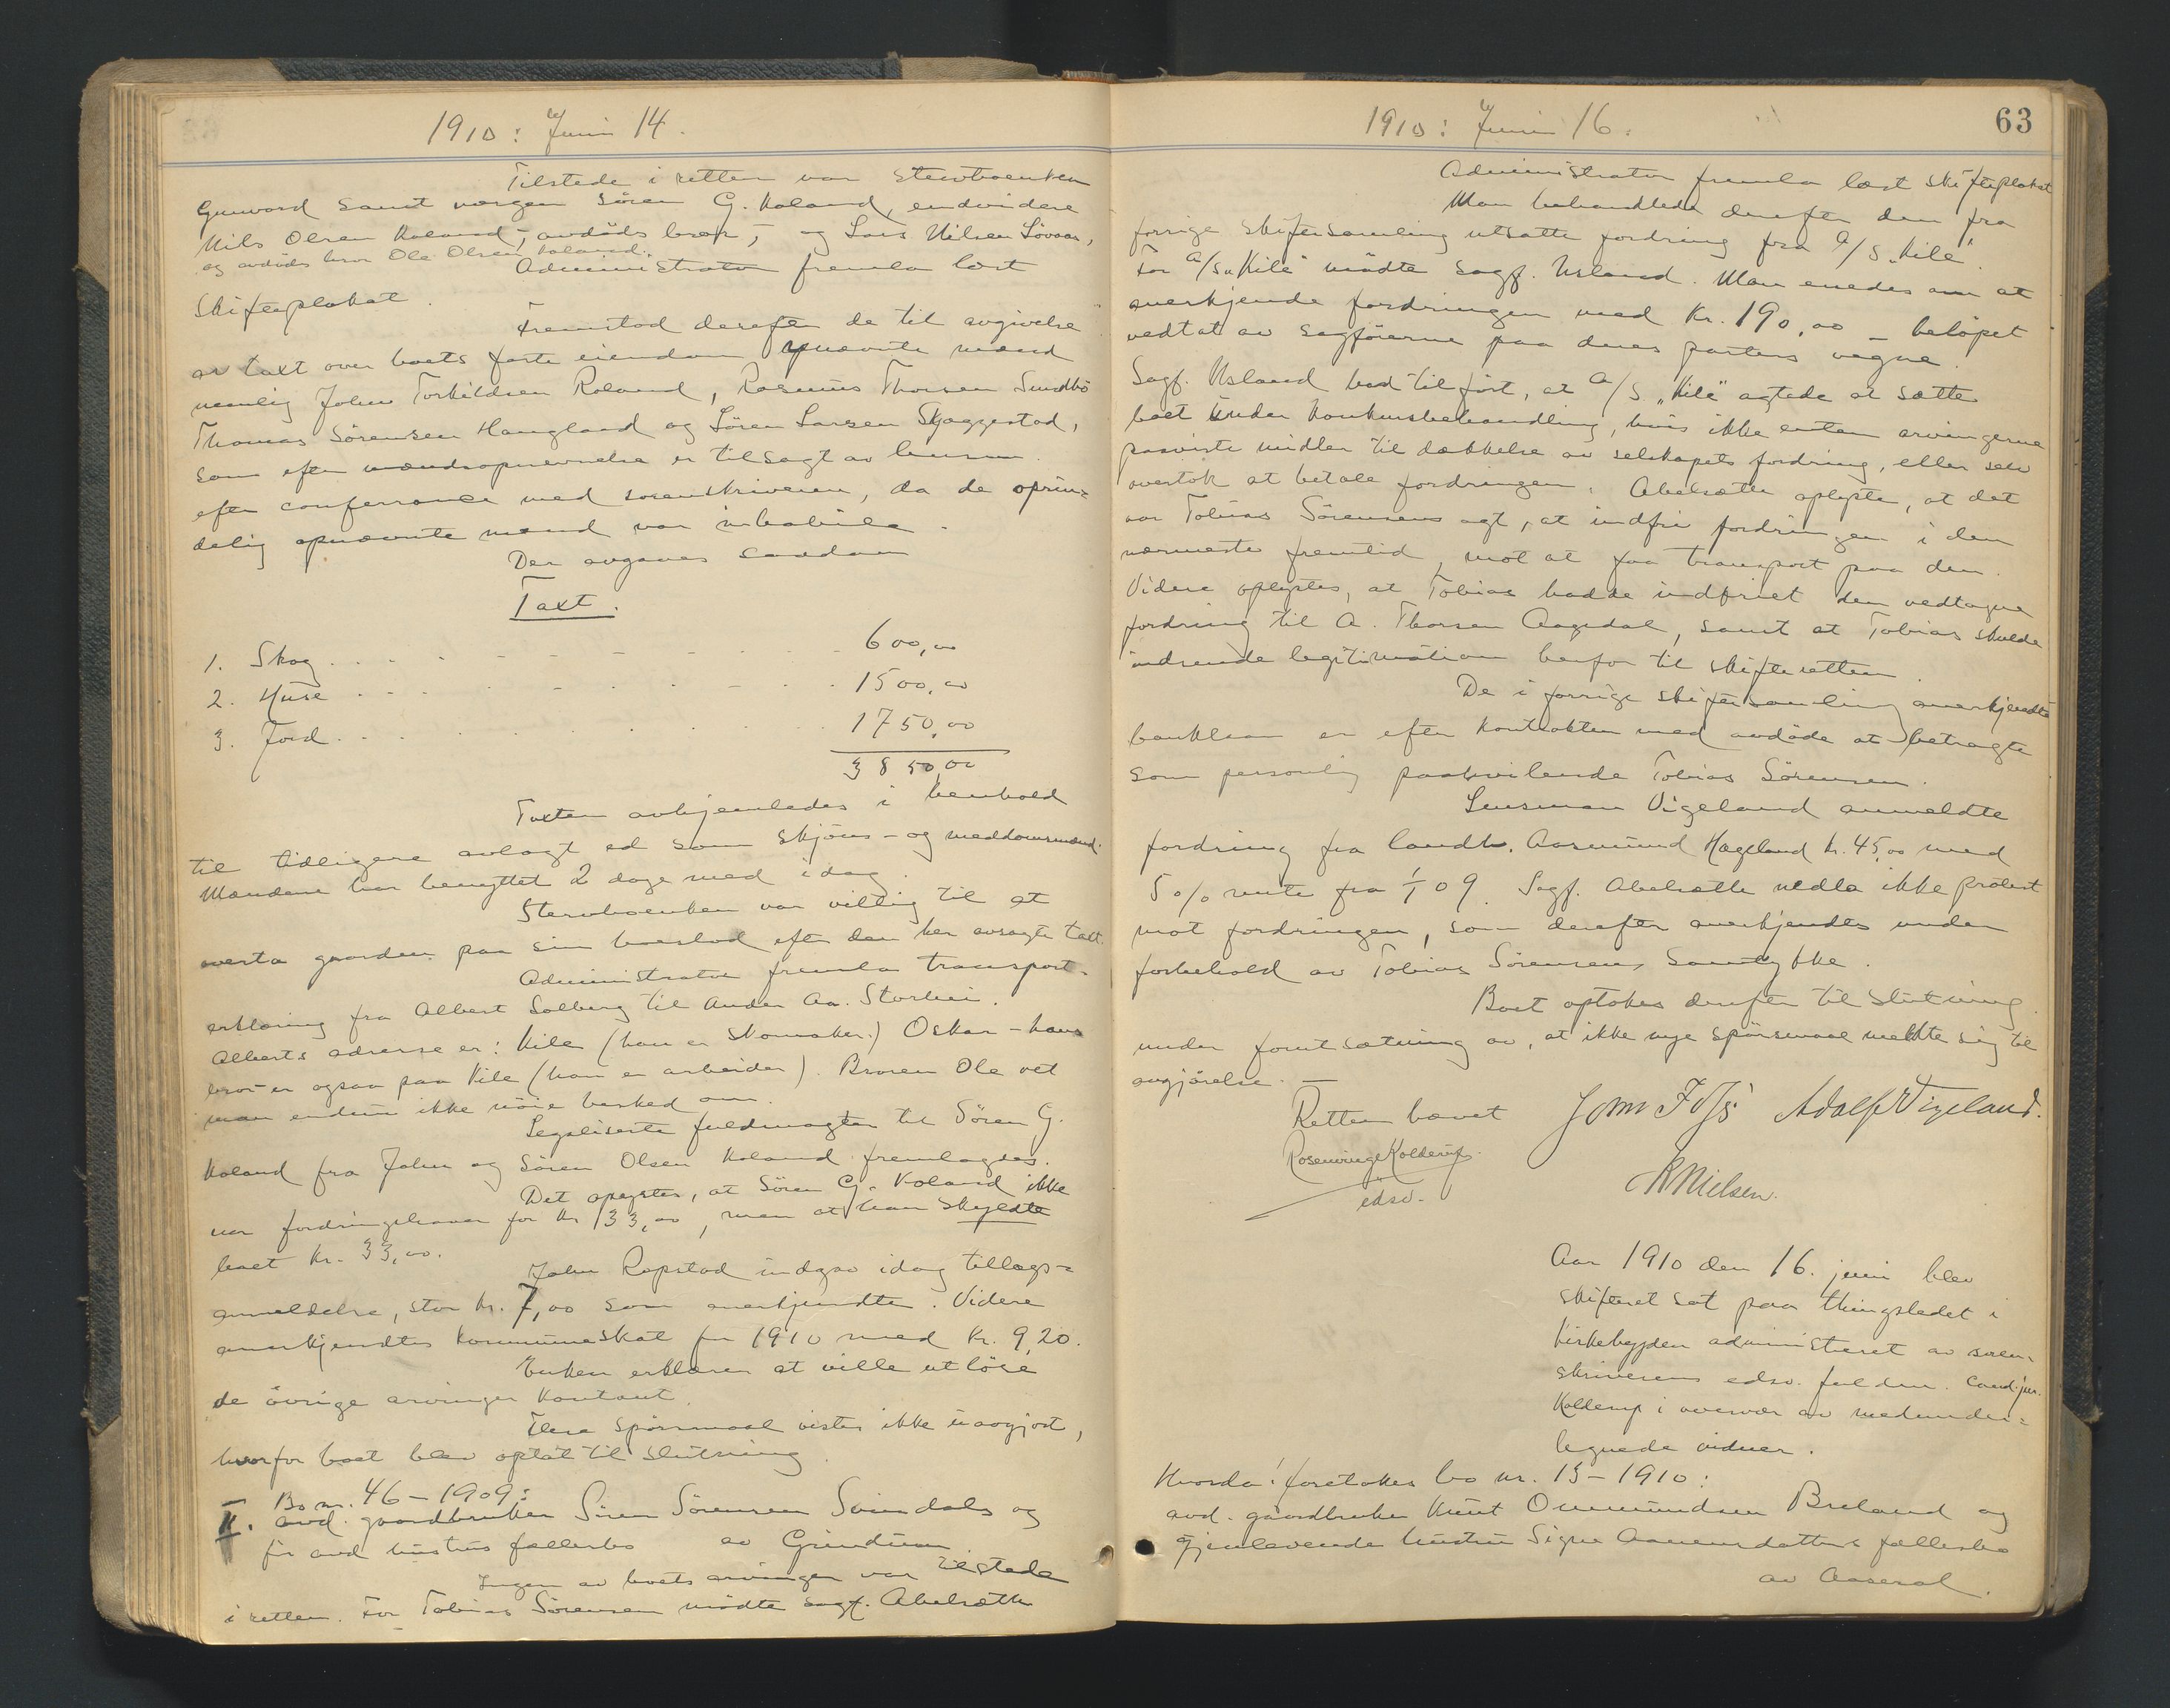 1910: Juni 14.
Tilstede i retten var sterboenken
Gunvord samt vergen Sören G. Koland, endvidere
Nils Olsen Koland, avdöds bror, og Lars Nilsen Lövaas,
og avdöds bror Ole Olsen Koland.
Administrator fremla læst
Skifteplakat.
Fremstod derefter de til avgivelse
av taxt over boets faste eiendom opnævnte mænd
nemlig John Torkildsen Roland, Rasmus Thorsen Sundbö
Thomas Sörensen Haugland og Sören Larsen Skaggestad,
som efter mændsopnevnelse er tilsagt av lensm.
efter conferrance med sorenskriveren, da de oprin=
delig opnævnte mænd var inhabile.
Der avgaves saadan
Taxt.
1. Skog . . . . . 600,00
2. Huse . . . . . 1500,00
3. Jord . . . . . 1750,00
3850,00
Taxten avhjemledes i henhold
til tidligere avlagt ed som skjöns- og meddomsmænd.
Mændene har benyttet 2 dage med idag.
Sterboenken var villig til at
overta gaarden paa sin boeslod efter den her avsagte taxt.
Administrator fremla transport-
erklæring fra Albert Solberg til Anders Aa. Storlien.
Alberts adresse er: Kile (han er skomaker.) Oskar - hans
bror - er ogsaa paa Kile (han er arbeider). Broren Ole vet
man endnu ikke nöie besked om.
Legaliserte fuldmagter til Sören G.
Koland fra John og Sören Olsen Koland fremlagdes.
Det oplystes, at Sören G. Koland ikke
var fordringshaver for kr. 33,00, men at han skyldte
boet kr. 33,00.
John Repstad indgav idag tillægs=
anmeldelse, stor kr. 7,00 som anerkjendtes. Videre
anerkjendtes kommuneskat for 1910 med kr. 9,20.
Enken erklærer at ville utlöse
de övrige arvinger kontant.
Flere spörsmaal vistes ikke uavgjort,
hvorfor boet blev optat til slutning.
II. Bo nr. 46 - 1909:
avd. gaardbruker Sören Sörensen Svindals og
för avd. hustrus fællesbo av Grindum
Ingen av boets arvinger var tilstede
i retten. For Tobias Sörensen mödte sagf. Abelsæth
1910: Juni 16.
63
Administrator fremla læst skifteplakat
Man behandlede derefter den fra
forrige skiftesamling utsatte fordring fra A/S "Kile".
For A/S "Kile" mödte sagf. Usland. Man enedes om at
anerkjende fordringen med kr. 190,00 - belöpet
vedtat av sagförerne paa deres parters vegne.
Sagf. Usland bad tilfört, at A/S "Kile" agtede at sætte
boet under konkursbehandling, hvis ikke enten arvingerne
paaviste midler til dækkelse av selskapets fordring, eller selv
overtok at betale fordringen. Abelsæth oplyste, at det
var Tobias Sörensens agt, at indfri fordringen i den
nærmeste fremtid, mot at faa transport paa den
Videre oplystes, at Tobias hadde indfriet den vedtagne
fordring til A. Thorsen Aagedal, samt at Tobias skulde
indsende legitimation herfor til skifteretten.
De i forrige skiftesamling anerkjendte
banklaan er efter kontrakten med avdöde at betragte
som personlig paahvilende Tobias Sörensen.
Lensman Vigeland anmeldte
fordring fra landh. Aasmund Hægeland kr. 45,00 med
5 o/o rente fra 1/1 09. Sagf. Abelsæth nedla ikke protest
mot fordringen, som derefter anerkjendtes under
forbehold av Tobias Sörensens samtykke.
Boet optokes derefter til slutning
under forutsætning av, at ikke nye spörsmaal meldte sig til
avgjörelse. -
Retten hævet
Rosenvinge Kolderup
edsv.
John Foss Adolf Vigeland.
Nielsen.
Aar 1910 den 16. juni blev
skifteret sat paa thingstedet i
Kirkebygden administreret av soren-
skriverens edsv. fuldm. cand. jur.
Kolderup i overvær av medunder=
tegnede vidner.
Hvorda: foretokes bo nr. 13 - 1910:
avd. gaardbruker Knut Ommundsen Breland og
gjenlevende hustru Signe Aanensdatters fællesbo
av Aaseral.